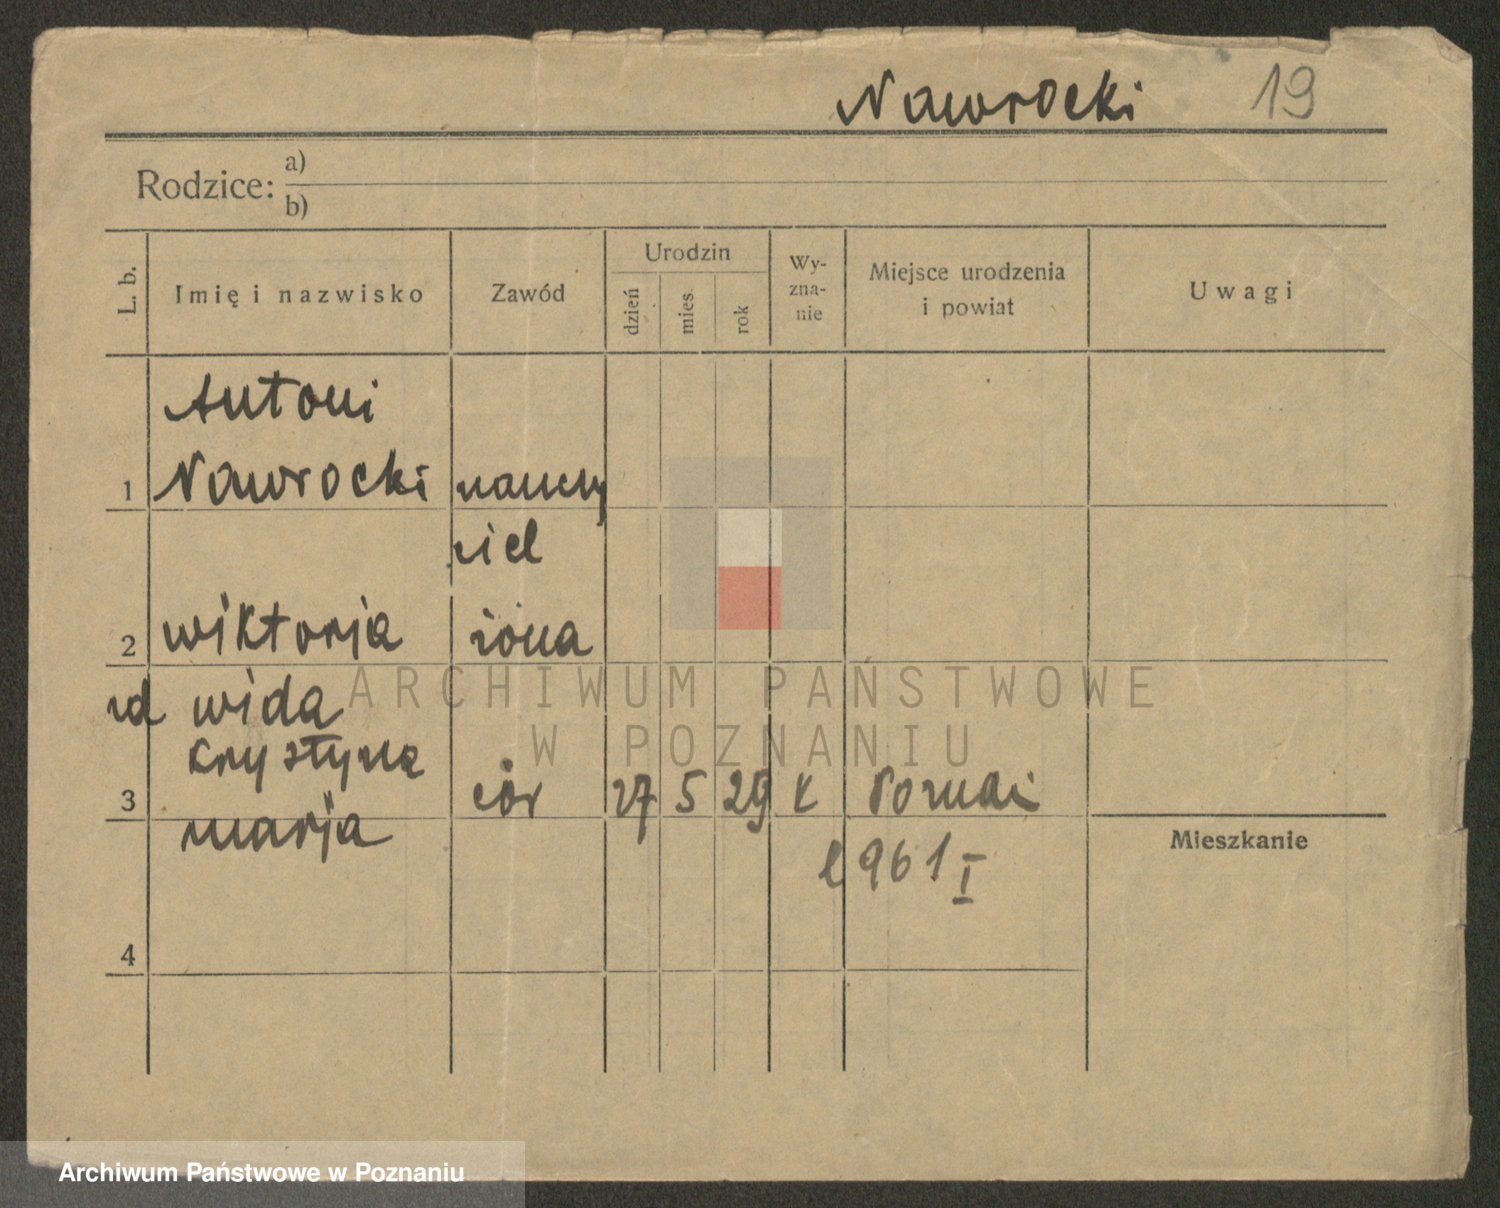 Nawrocki 19
Rodzice: a)
b)
L. b.
Imię i nazwisko
Zawód
Urodzin
dzień
mies.
rok
Wy-
zna-
nie
Miejsce urodzenia
i powiat
Uwagi
Antoni
1 Nawrocki nauczy
ciel
2 Wiktorja żona
zd Wida
Krystyna
3 cór 27 5 29 k Poznań
Marja
Mieszkanie
961 I
4
ARCHIWUM PAŃSTWOWE
W POZNANIU
Archiwum Państwowe w Poznaniu